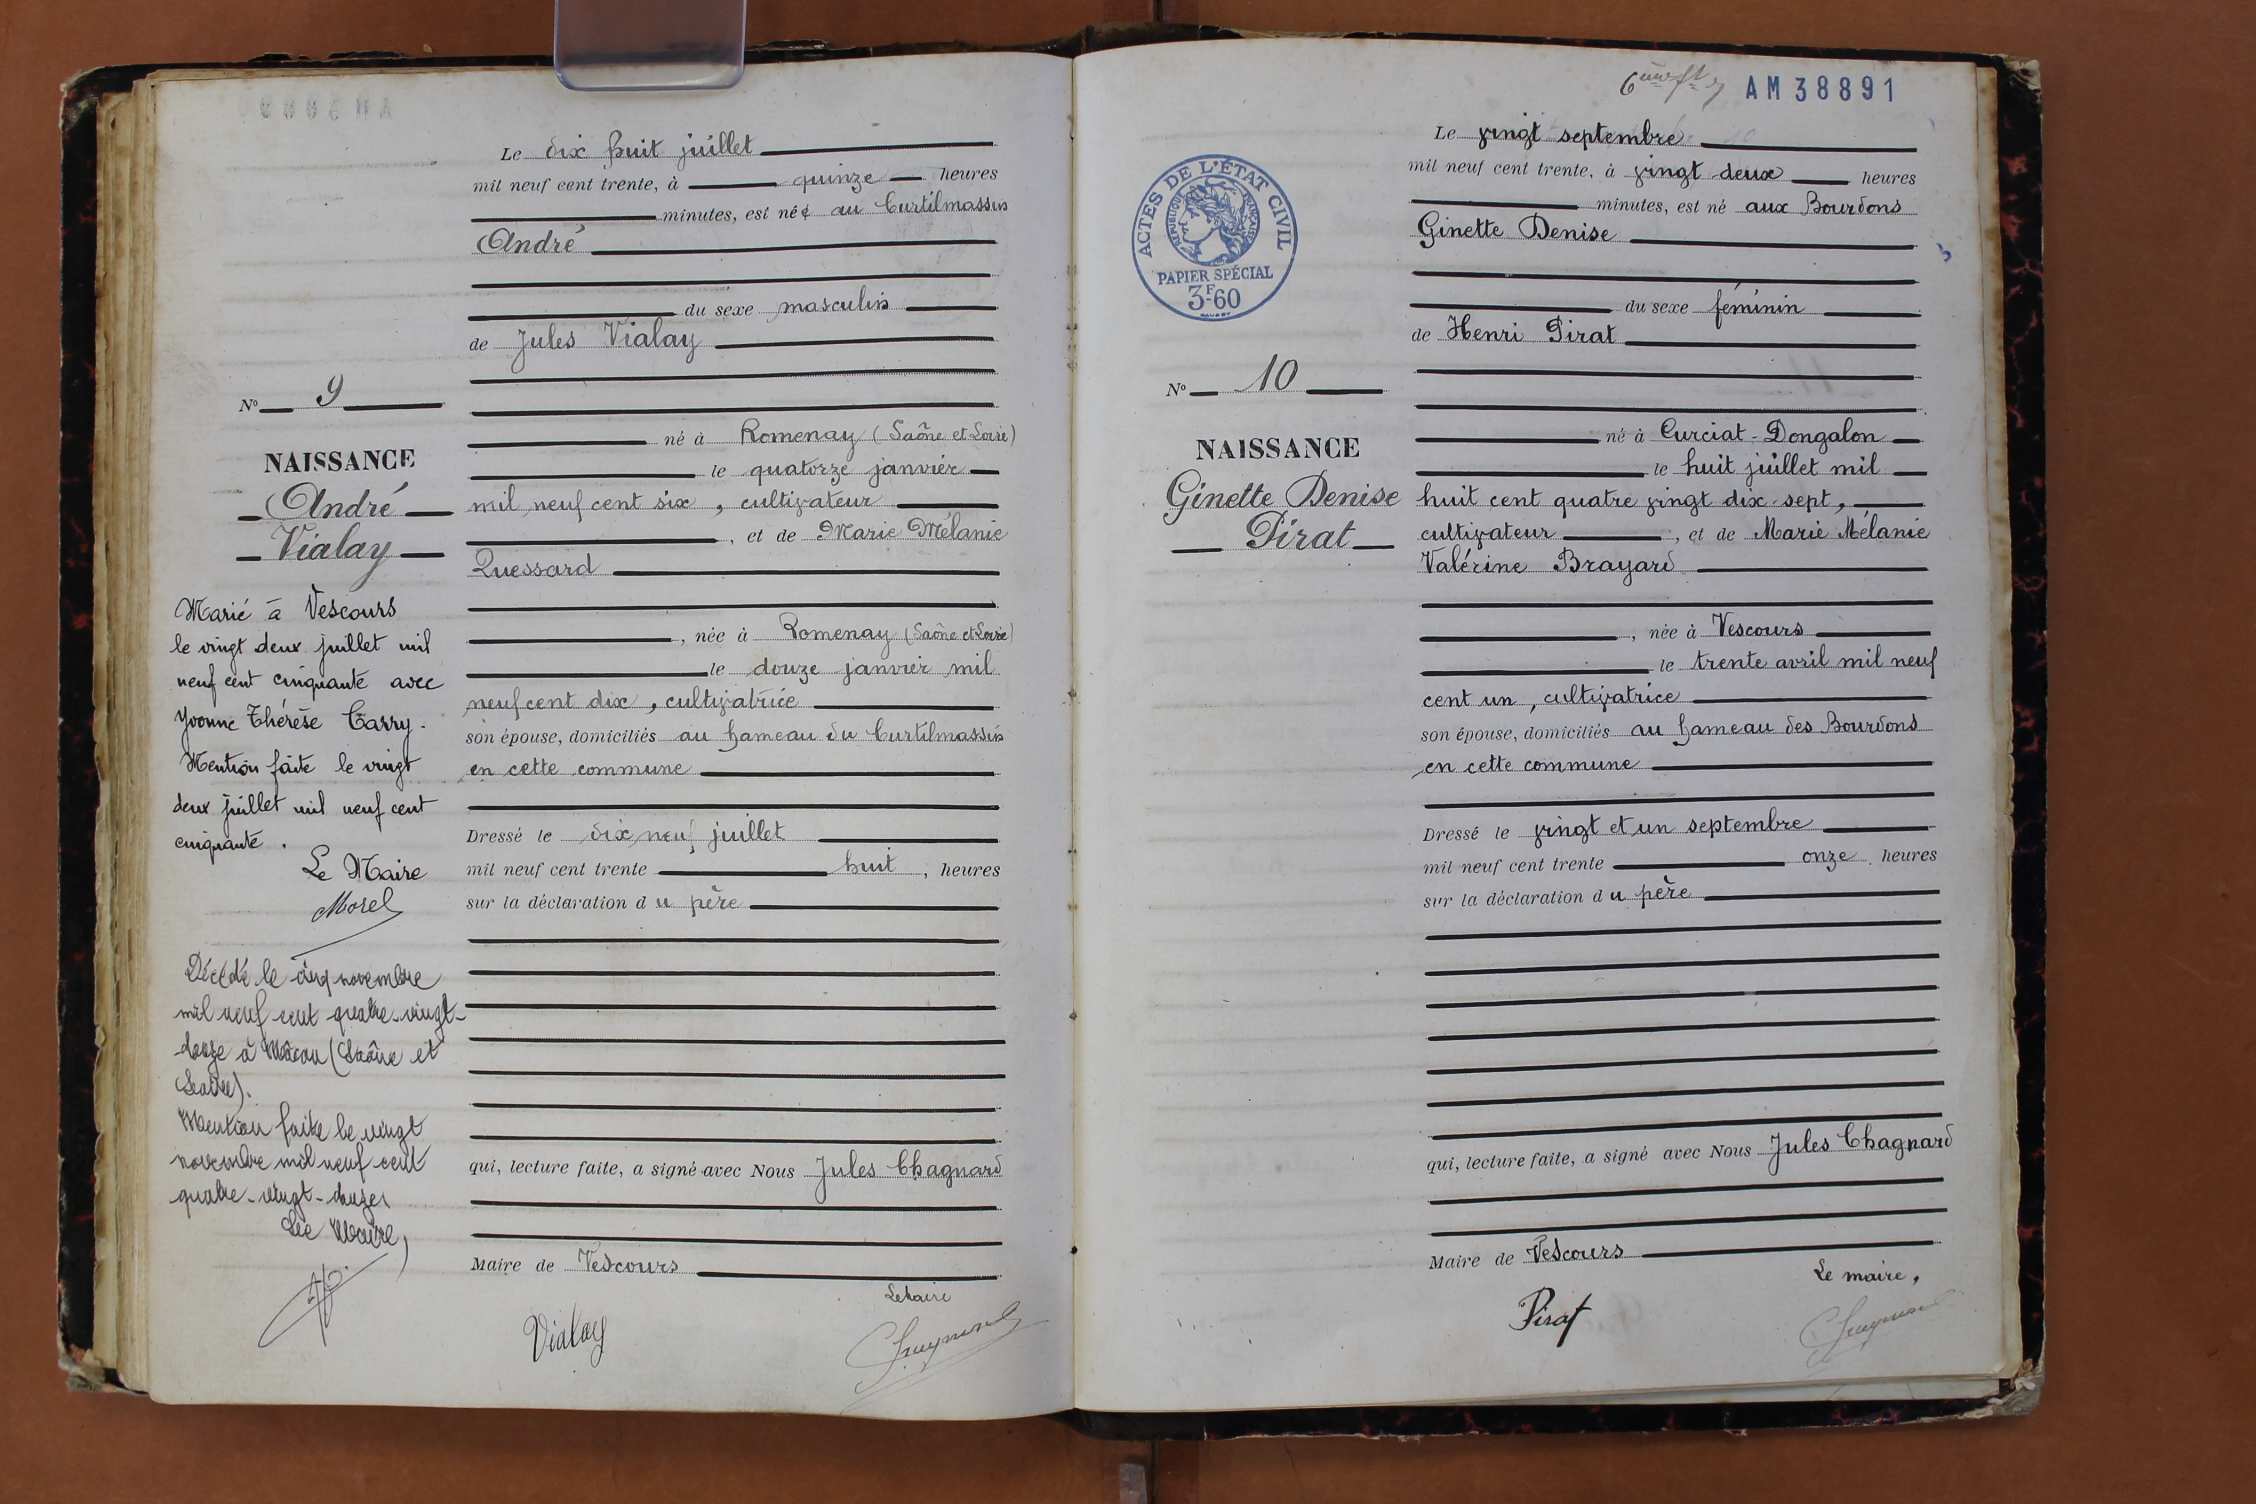 Le dix huit juillet
mil neuf cent trente, à quinze heures
minutes, est né au Curtilmassin
André
du sexe masculin
de Jules Vialay
né à Romenay (Saône et Loire)
le quatorze janvier
mil neuf cent six, cultivateur
, et de Marie Mélanie
Quessard
, née à Romenay (Saône et Loire)
le douze janvier mil
neuf cent dix, cultivatrice
son épouse, domiciliés au hameau du Curtilmassin
en cette commune
Dressé le dix neuf juillet
mil neuf cent trente huit, heures
sur la déclaration du père
qui, lecture faite, a signé avec Nous Jules Chagnard
Maire de Vescours
Le Maire
Vialay
No 9
NAISSANCE
André
Vialay
Marié à Vescours
le vingt deux juillet mil
neuf cent cinquante avec
Yvonne Thérèse Carry.
Mention faite le vingt
deux juillet mil neuf cent
cinquante.
Le Maire
Morel
Décédé le cinq novembre
mil neuf cent quatre-vingt-
douze à Mâcon (Saône et
Loire).
Mention faite le vingt
novembre mil neuf cent
quatre-vingt-douze
Le Maire,
AM 38891
Le vingt septembre
mil neuf cent trente, à vingt deux heures
minutes, est né aux Bourdons
Ginette Denise
du sexe féminin
de Henri Pirat
né à Curciat-Dongalon
le huit juillet mil
huit cent quatre vingt dix-sept,
cultivateur, et de Marie Mélanie
Valérine Brayard
, née à Vescours
le trente avril mil neuf
cent un, cultivatrice
son épouse, domiciliés au hameau des Bourdons
en cette commune
Dressé le vingt et un septembre
mil neuf cent trente onze heures
sur la déclaration du père
qui, lecture faite, a signé avec Nous Jules Chagnard
Maire de Vescours
Le maire,
Pirat
ACTES DE L'ÉTAT CIVIL
RÉPUBLIQUE FRANÇAISE
PAPIER SPÉCIAL
3F60
No 10
NAISSANCE
Ginette Denise
Pirat